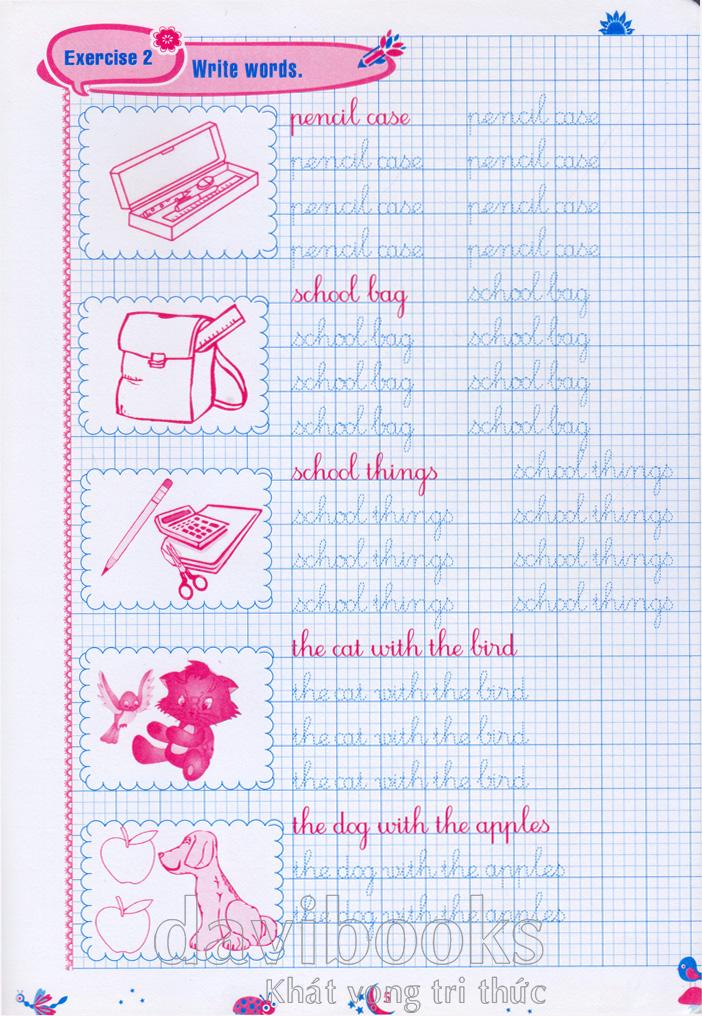 Exercise 2
Write words.
pencil case pencil case
pencil case pencil case
pencil case pencil case
pencil case pencil case
school bag school bag
school bag school bag
school bag school bag
school bag school bag
school things school things
school things school things
school things school things
school things school things
the cat with the bird
the cat with the bird
the cat with the bird
the cat with the bird
the dog with the apples
the dog with the apples
the dog with the apples
davibooks
Khát vọng tri thức
5